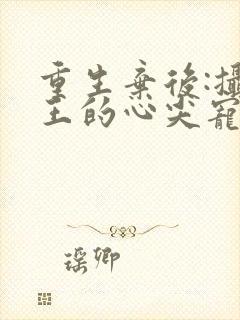 重生棄後:攝
王的心尖寵
瑶卿